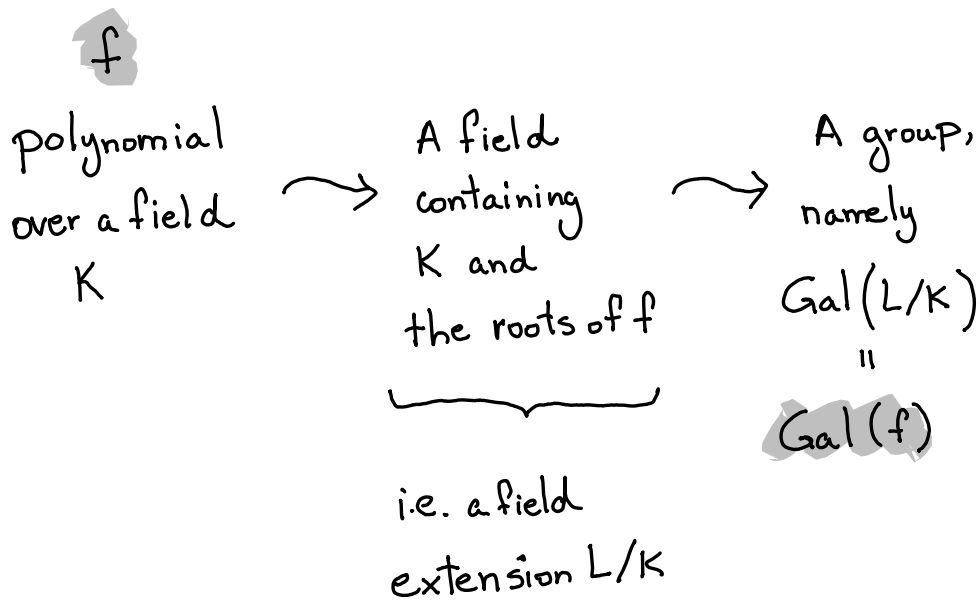 f
polynomial
over a field
K
A field
containing
K and
the roots of f
i.e. a field
extension L/K
A group,
namely
Gal(L/K)
=
Gal(f)